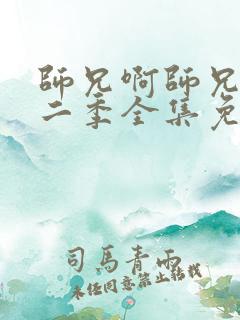 師兄啊師兄
二季全集免
司馬青雨
未经同意禁止转载